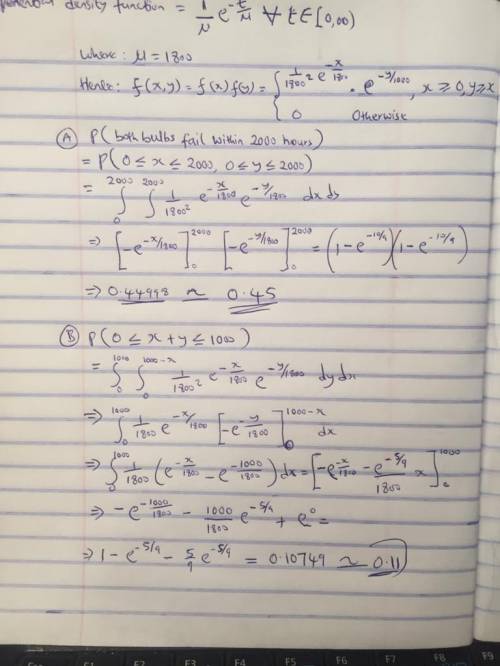 density function = 1/μ e^(-t/μ) ∀ t ∈ [0,∞)
Where: μ = 1800
Hence: f(x,y) = f(x) f(y) = { 1/1800² e^(-x/1800) · e^(-y/1800), x ≥ 0, y ≥ x
0 Otherwise
(A) P(both bulbs fail within 2000 hours)
= P(0 ≤ x ≤ 2000, 0 ≤ y ≤ 2000)
= ∫₀^2000 ∫^2000 1/1800² e^(-x/1800) e^(-y/1800) dx dy
⇒ [-e^(-x/1800)]₀^2000 [-e^(-y/1800)]₀^2000 = (1 - e^(-10/9))(1 - e^(-10/9))
⇒ 0.44998 ≃ 0.45
(B) P(0 ≤ x + y ≤ 1000)
= ∫₀^1000 ∫₀^(1000-x) 1/1800² e^(-x/1800) e^(-y/1800) dy dx
⇒ ∫₀^1000 1/1800 e^(-x/1800) [-e^(-y/1800)]₀^(1000-x) dx
⇒ ∫₀^1000 1/1800 (e^(-x/1800) - e^(-1000/1800)) dx = [-e^(-x/1800) - e^(-5/9)/1800 x]₀^1000
⇒ -e^(-1000/1800) - 1000/1800 e^(-5/9) + e⁰ =
⇒ 1 - e^(-5/9) - 5/9 e^(-5/9) = 0.10749 ≃ 0.11
F4 F5 F6 F7 F8 F9